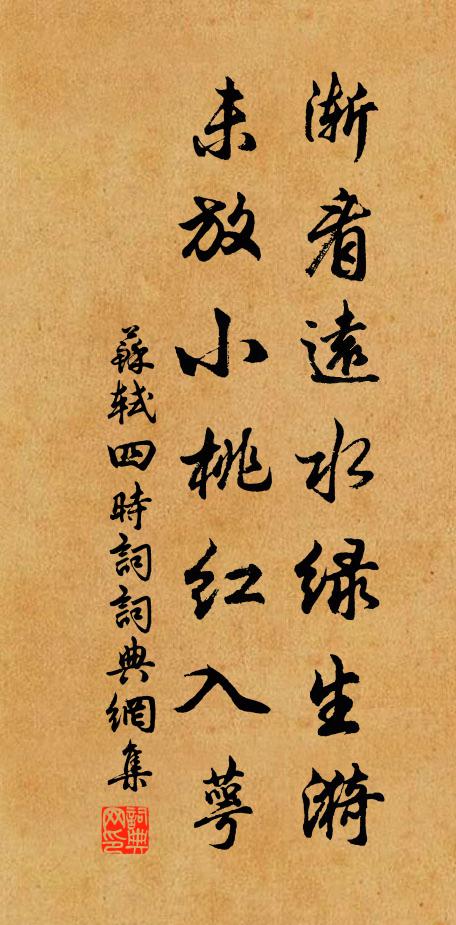 渐看遠水绿生漪
未放小桃红入萼
蘇軾四時詞詞典網集
詞典網印